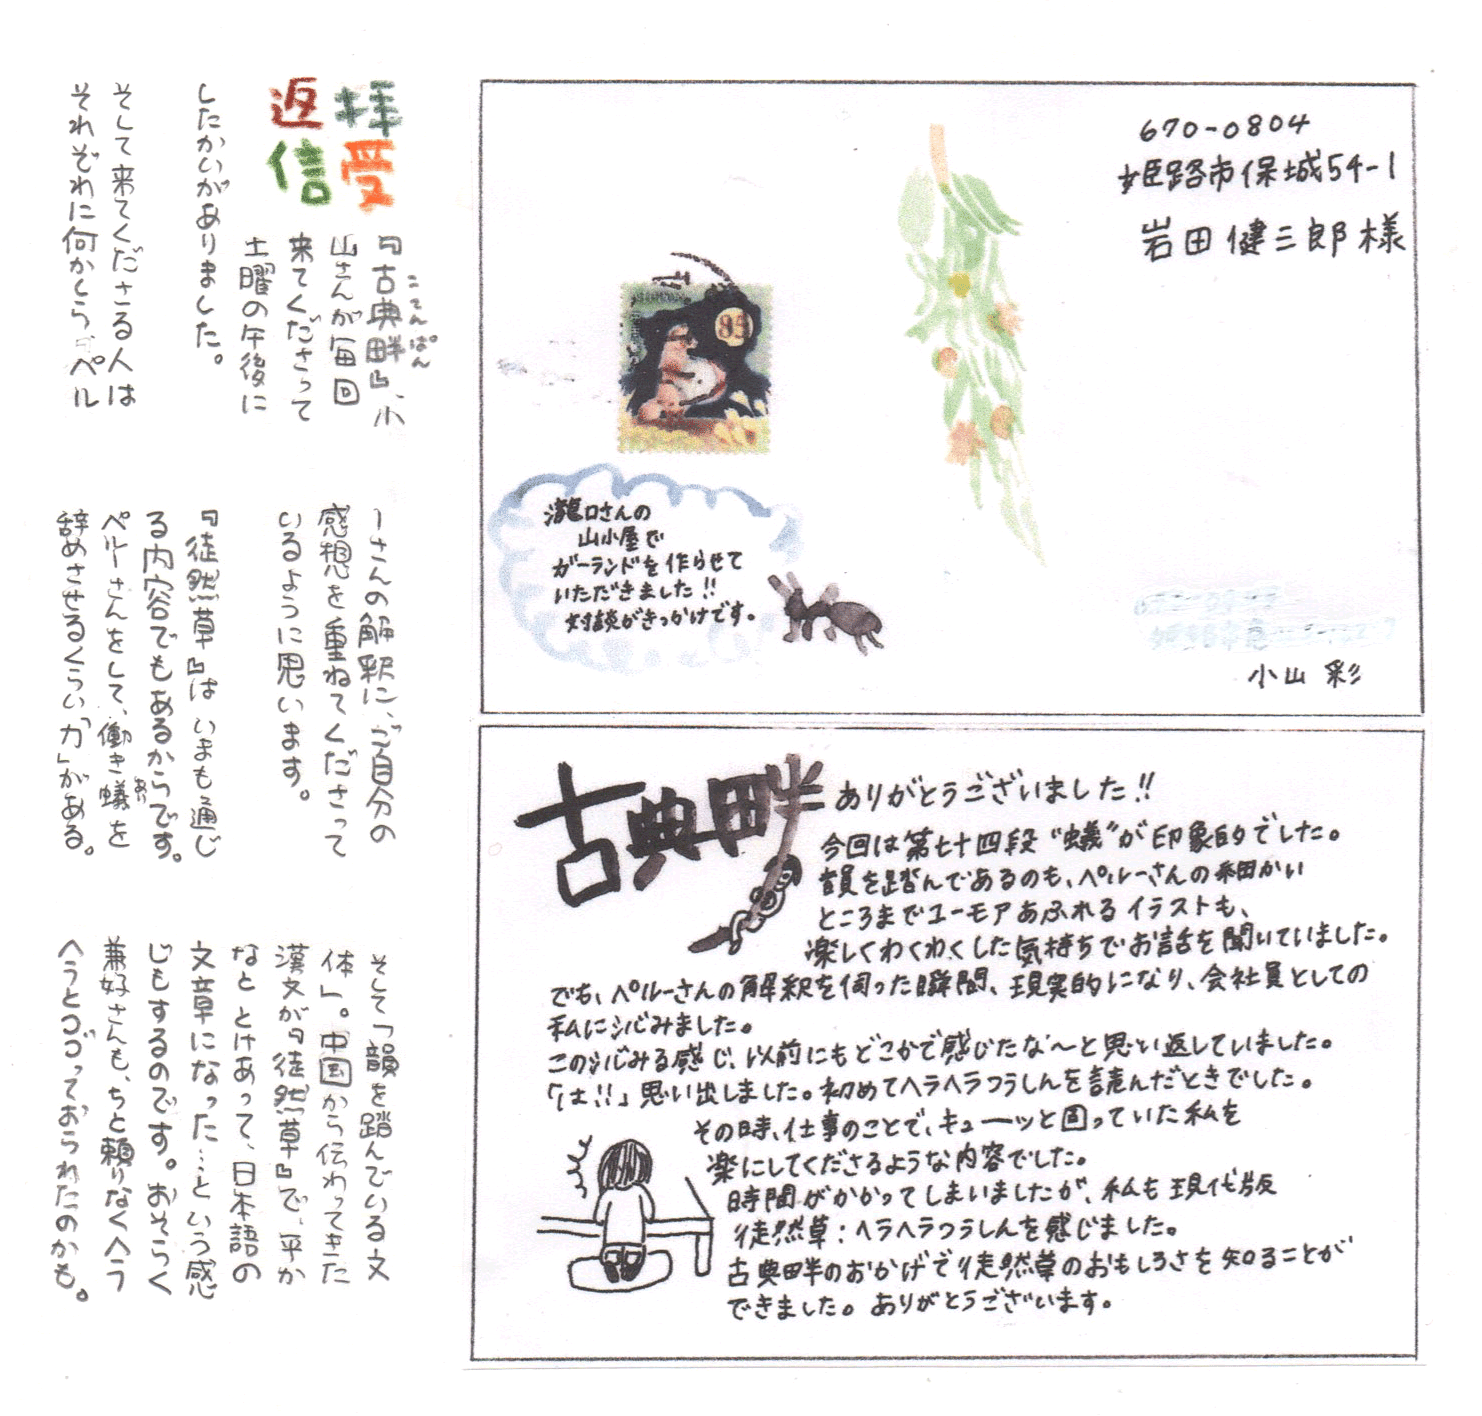 拝受
返信
『古典畔』、小
こてんぱん
山さんが毎回
来てくださって
土曜の午後に
したかいがありました。
そして来てくださる人は
それぞれに何かしら、ペル
ーさんの解釈に、ご自分の
感想を重ねてくださって
いるように思います。
『徒然草』は いまも通じ
る内容でもあるからです。
ペルーさんをして、働き蟻を
あり
辞めさせるくらい「力」がある。
そして「韻を踏んでいる文
体」。中国から伝わってきた
漢文が『徒然草』で、平か
なと とけあって、日本語の
文章になった…という感
じもするのです。おそらく
兼好さんも、ちと頼りなくヘラ
ヘラとつづっておられたのかも。
670-0804
姫路市保城54-1
岩田健三郎様
85
瀧口さんの
山小屋で
ガーランドを作らせて
いただきました!!
対談がきっかけです。
小山 彩
古典畔 ありがとうございました!!
今回は第七十四段“蟻”が印象的でした。
韻を踏んであるのも、ペルーさんの細かい
ところまでユーモアあふれるイラストも、
楽しくわくわくした気持ちでお話を聞いていました。
でも、ペルーさんの解釈を伺った瞬間、現実的になり、会社員としての
私にジンみました。
このジンみる感じ、以前にもどこかで感じたな〜と思い返していました。
「は!!」思い出しました。初めてヘラヘラつうしんを読んだときでした。
その時、仕事のことで、キューッと固っていた私を
楽にしてくださるような内容でした。
時間がかかってしまいましたが、私も現代版
徒然草:ヘラヘラつうしんを感じました。
古典畔のおかげで徒然草のおもしろさを知ることが
できました。ありがとうございます。